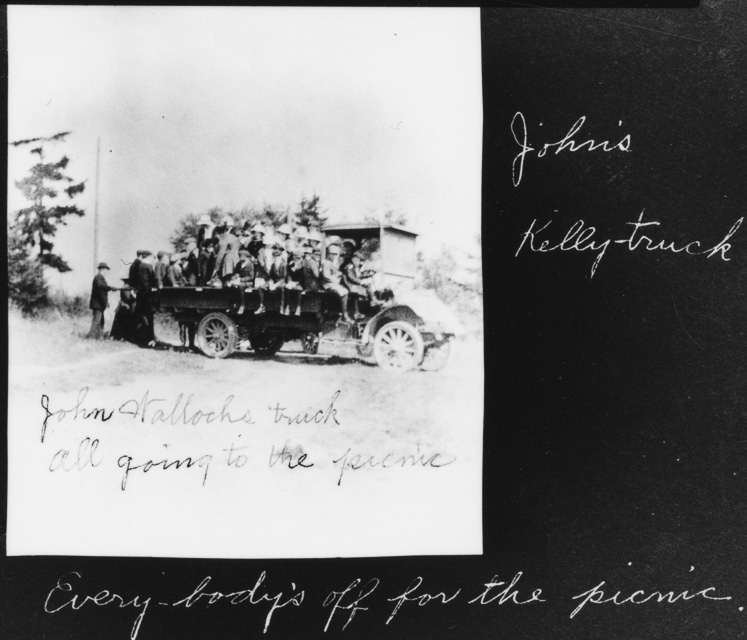 John's
Kelly-truck
John Wallochs truck
all going to the picnic
Every-body's off for the picnic.